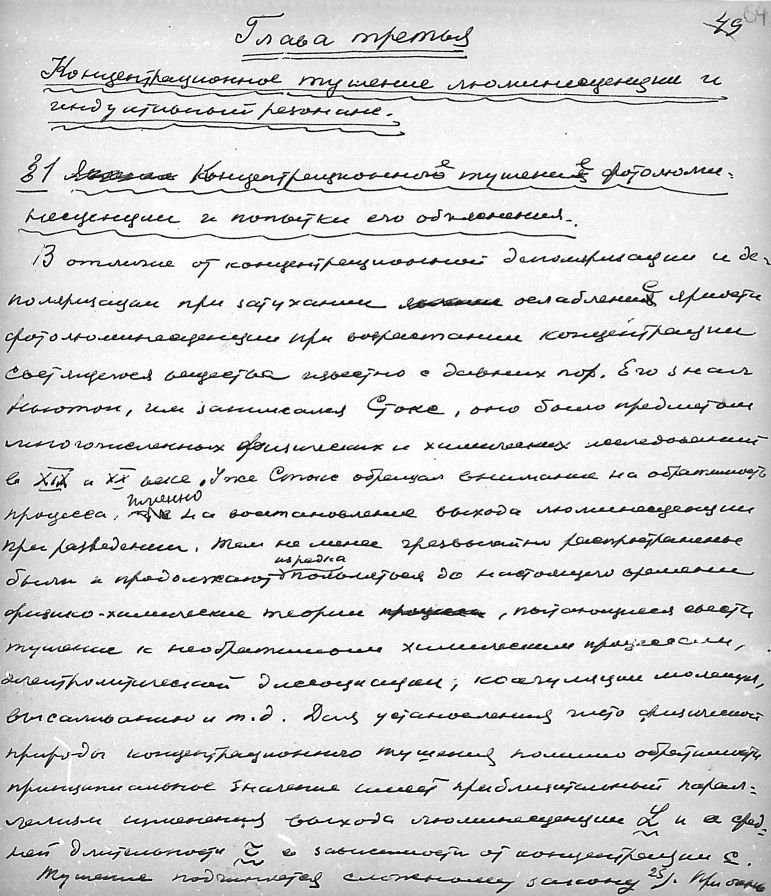 49
64
Глава третья
Концентрационное тушение люминесценции и
индуктивный резонанс.
§1 Концентрационное тушение фотолюми-
несценции и попытки его объяснения.
В отличие от концентрационной деполяризации и де-
поляризации при затухании ослабление яркости
фотолюминесценции при возрастании концентрации
светящегося вещества известно с давних пор. Его знал
Ньютон, им занимался Стокс, оно было предметом
многочисленных физических и химических исследований
в XIX и XX веке. Уже Стокс обращал внимание на обратимость
процесса, именно на восстановление выхода люминесценции
при разведении. Тем не менее чрезвычайно распространены
были и продолжают изредка появляться до настоящего времени
физико-химические теории, пытающиеся свести
тушение к необратимым химическим процессам,
электролитической диссоциации, коагуляции молекул,
высаливанию и т.д. Для установления чисто физической
природы концентрационного тушения помимо обратимости
принципиальное значение имеет приблизительный парал-
лелизм изменения выхода люминесценции L и сред-
ней длительности τ в зависимости от концентрации c.
Тушение подчиняется сложному закону 25). При очень